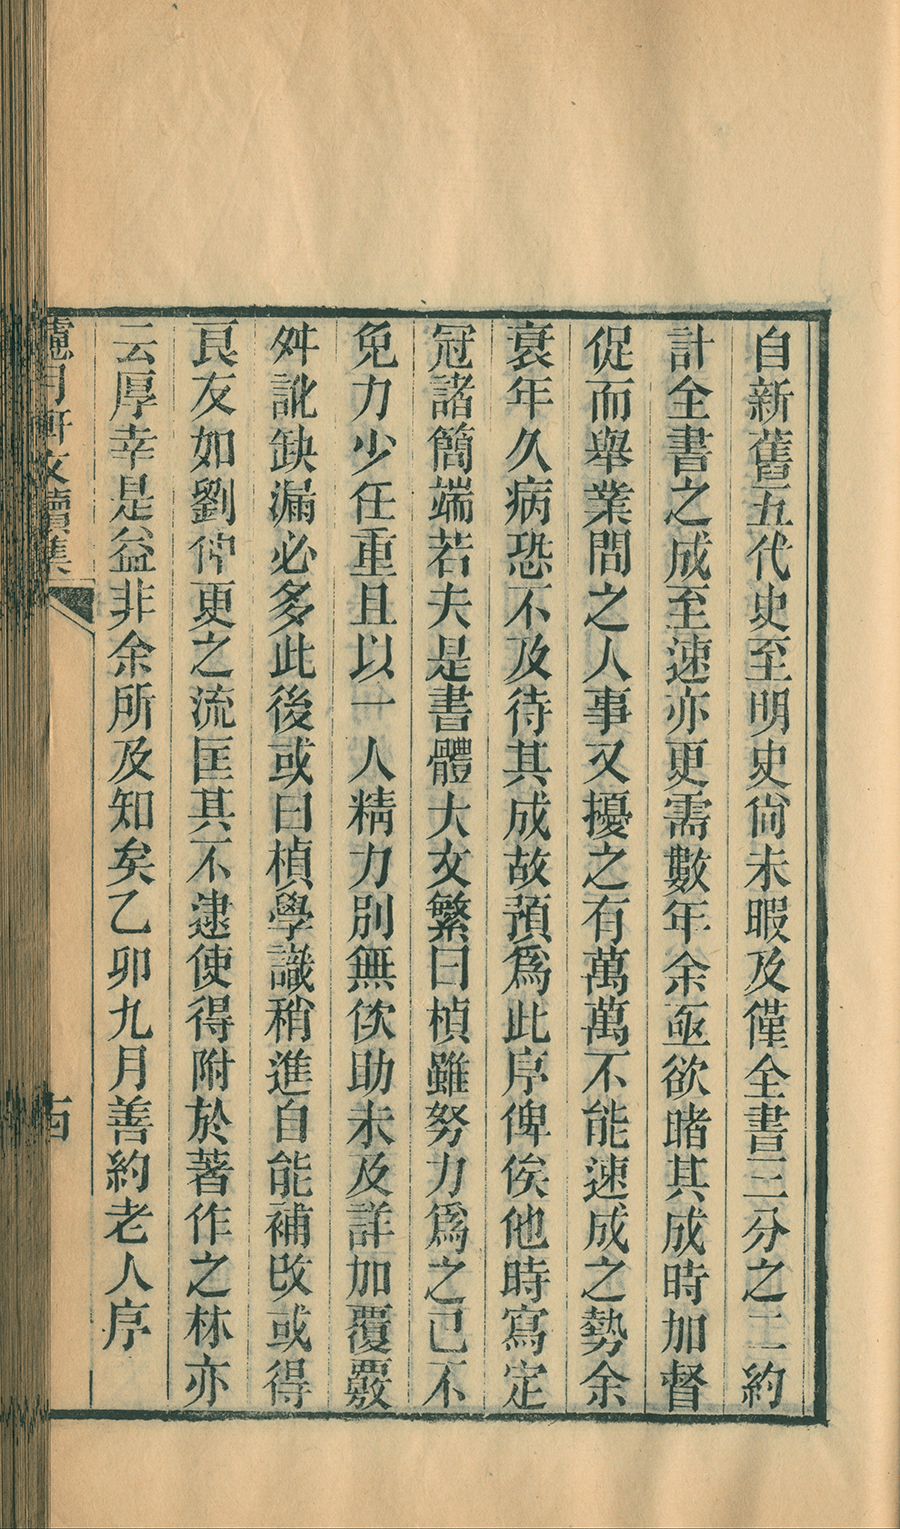 自新舊五代史至明史尙未暇及僅全書三分之二約
計全書之成至速亦更需數年余亟欲睹其成時加督
促而舉業問之人事又擾之有萬萬不能速成之勢余
衰年久病恐不及待其成故預爲此序俾俟他時寫定
冠諸簡端若夫是書體大文繁曰楨雖努力爲之已不
免力少任重且以一人精力別無佽助未及詳加覆覈
舛訛缺漏必多此後或曰楨學識稍進自能補改或得
良友如劉仲更之流匡其不逮使得附於著作之林亦
云厚幸是益非余所及知矣乙卯九月善約老人序
月軒文續集